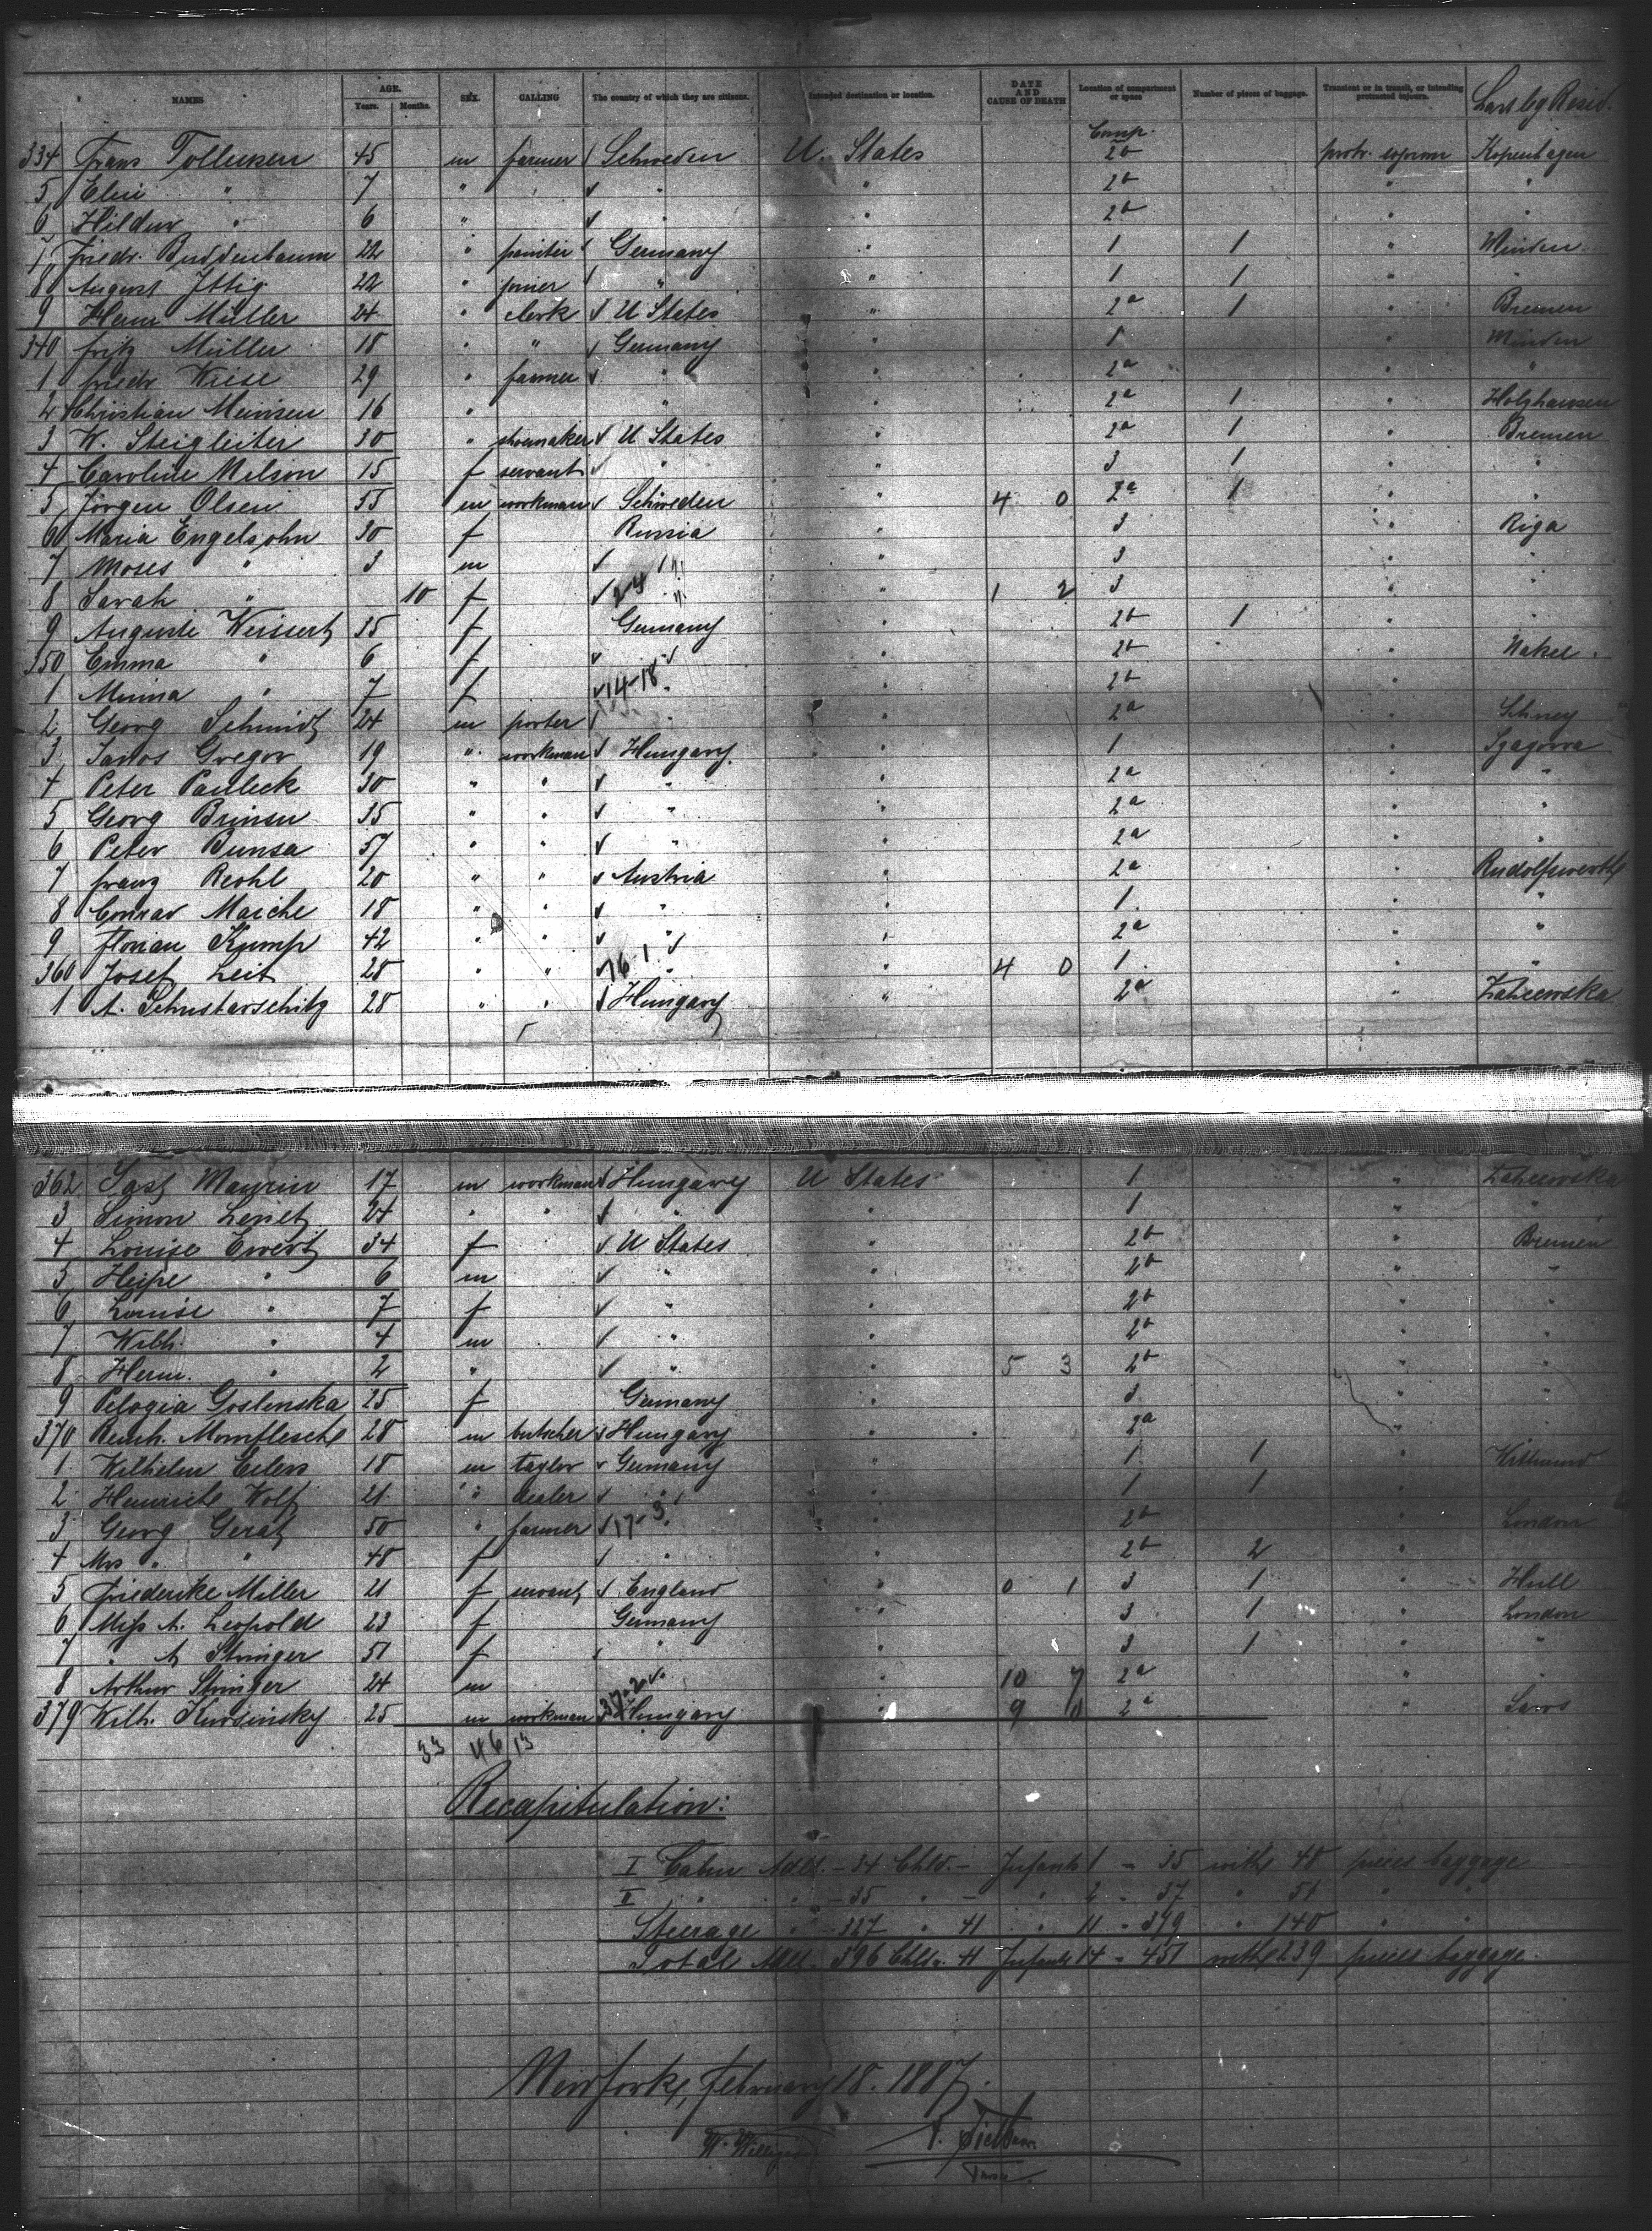 NAMES AGE. Years. Months. SEX. CALLING The country of which they are citizens. Intended destination or location. DATE AND CAUSE OF DEATH Location of compartment or space Number of pieces of baggage. Transient or in transit, or intending protracted sojourn. Last leg Resid.
Comp.
334 Frans Tollensen 45 m farmer Schweden U. States 2b protr. sojourn Kopenhagen
5 Elin " 7 " " " 2b " "
6 " 6 " " " 2b " "
7 Friedr. Buddenbaum 22 " painter Germany " 1 1 " Minden
8 August Ittig 22 " joiner " " 1 1 " "
9 Herm Müller 24 " clerk U States " 2a 1 " Bremen
340 Fritz Müller 18 " " Germany " 1 " Minden
1 Friedr Wiese 29 " farmer " " 2a " "
2 Christian Meinsen 16 " " " 2a 1 " Holzhausen
3 W. Steigleiter 30 " shoemaker U States " 2a 1 " Bremen
4 Caroline Nelson 15 f servant " " 3 1 " "
5 Jörgen Olsen 55 m workman Schweden " 4 0 2a 1 " "
6 Maria Engelsohn 30 f Russia " 3 " Riga
7 Moses " 3 m " " 3 " "
8 Sarah " 10 f 2-4 " " 1 2 3 " "
9 Auguste Weissert 35 f Germany " 2b 1 " "
350 Emma " 6 f " " 2b " Nakel
1 Minna " 7 f 14-18 " " 2b "
2 Georg Schmidt 24 m porter " " 2a " Schney
3 Janos Gregor 19 " workman Hungary " 1 " Szagorra
4 Peter Pauleck 30 " " " " 2a " "
5 Georg Brinsu 35 " " " " 2a " "
6 Peter Bunsa 57 " " " " 2a " "
7 Franz Reohl 20 " " Austria " 2a " Rudolfswerth
8 Conrad Maiche 18 " " " " 1 " "
9 Florian Kump 42 " " " " 2a " "
360 Josef Leit 28 " " 16-1 " " 4 0 1 " "
1 A. Schustarschitz 28 " " Hungary " 2a " Zaheewska
362 Maurin 17 m workman Hungary U States 1 " Zaheewska
3 Simon 24 " " " " 1 " "
4 Louise Ewert 34 f U States " 2b " Bremen
5 Heipe " 6 m " " 2b " "
6 Louise " 7 f " " 2b " "
7 Wilh. " 4 m " " 2b " "
8 Herm. " 2 " " " 5 3 2b " "
9 Pelagia Goslinska 25 f Germany " 3 " "
370 Reinh. Mornflesch 28 m butcher Hungary " 2a "
1 Wilhelm Eilers 18 m taylor Germany " 1 1 " Wittmund
2 Heinrich Wolf 21 " dealer " " 1 1 "
3 Georg Gerat 50 " farmer 17-3 " " 2b " London
4 Mrs " " 48 f " " 2b 2 "
5 Friederike Miller 21 f servant England " 0 1 3 1 " Hull
6 Miss A. Leopold 23 f Germany " 3 1 " London
7 " A Stringer 51 f " " 3 1 " "
8 Arthur Stringer 24 m 37-2 " " 10 7 2a " "
379 Wilh. Kursinsky 25 m workman Hungary " 9 2a " Saros
33 46 13
Recapitulation:
I Cabin Adlt. - 34 Chld. - Infants 1 - 35 with 48 pieces baggage
II " " - 35 " - " 2 - 37 " 51 " "
Steerage " - 327 " 41 " 11 - 379 " 140 " "
Total Adlt. 396 Chldr. 41 Infants 14 - 451 with 239 pieces baggage.
New York, February 18. 1887.